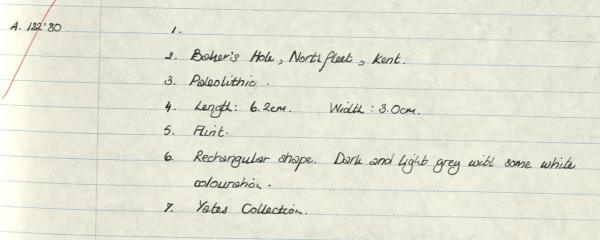 A. 122'80
1.
2. Baker's Hole, Northfleet, Kent.
3. Paleolithic.
4. Length: 6.2cm. Width: 3.0cm.
5. Flint.
6. Rectangular shape. Dark and light grey with some white
colouration.
7. Yates Collection.